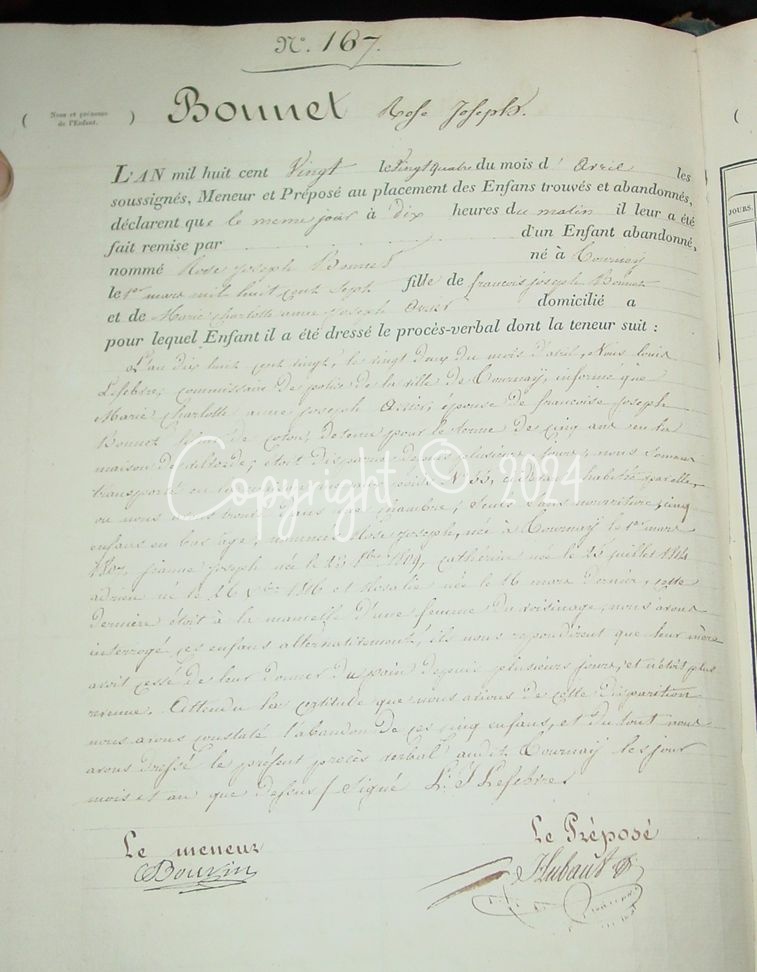 N.º 167.
( Nom et prénoms de l'Enfant. ) Bonnet Rose Joseph.
(
L'AN mil huit cent Vingt le vingt quatre du mois d' Avril les
soussignés, Meneur et Préposé au placement des Enfans trouvés et abandonnés,
déclarent que le meme jour à dix heures du matin il leur a été
fait remise par d'un Enfant abandonné,
nommé Rose Joseph Bonnet né à Tournay
le 1er mars mil huit cent sept fille de francois joseph Bonnet
et de Marie charlotte anne joseph domicilié a
pour lequel Enfant il a été dressé le procès-verbal dont la teneur suit :
L'an dix huit cent vingt, le vingt deux du mois d'avril, Nous louis
Lefebvre, commissaire de police de la ville de Tournay, informé que
Marie Charlotte anne joseph épouse de francoise joseph
Bonnet de coton, detenu pour le terme de cinq ans en la
maison de étoit disparue depuis plusieurs jours, nous sommes
transporté N.º 33, habitée par elle,
ou nous avons trouvé dans une chambre, seuls sans nourriture, cinq
enfans en bas age, nommés Rose Joseph, née à Tournay le 1er mars
1807, joseph née le 28 1809, catherine née le 25 juillet 1814
adrien né le 26 1816 et Rosalie née le 16 mars dernier, cette
dernière étoit à la mamelle d'une femme du voisinage, nous avons
interrogé ces enfans alternativement, ils nous repondirent que leur mère
avoit cessé de leur donner du pain depuis plusieurs jours, et n'étoit plus
revenue. Attendu la certitude que nous avions de cette disparition
nous avons constaté l'abandon de ces cinq enfans, et du tout nous
avons dressé le présent procès verbal audit Tournay les jour
mois et an que dessus / Signé L. J Lefebvre.
Le meneur
Bouvin
Le Préposé
Hubaut
JOURS.
Copyright © 2024